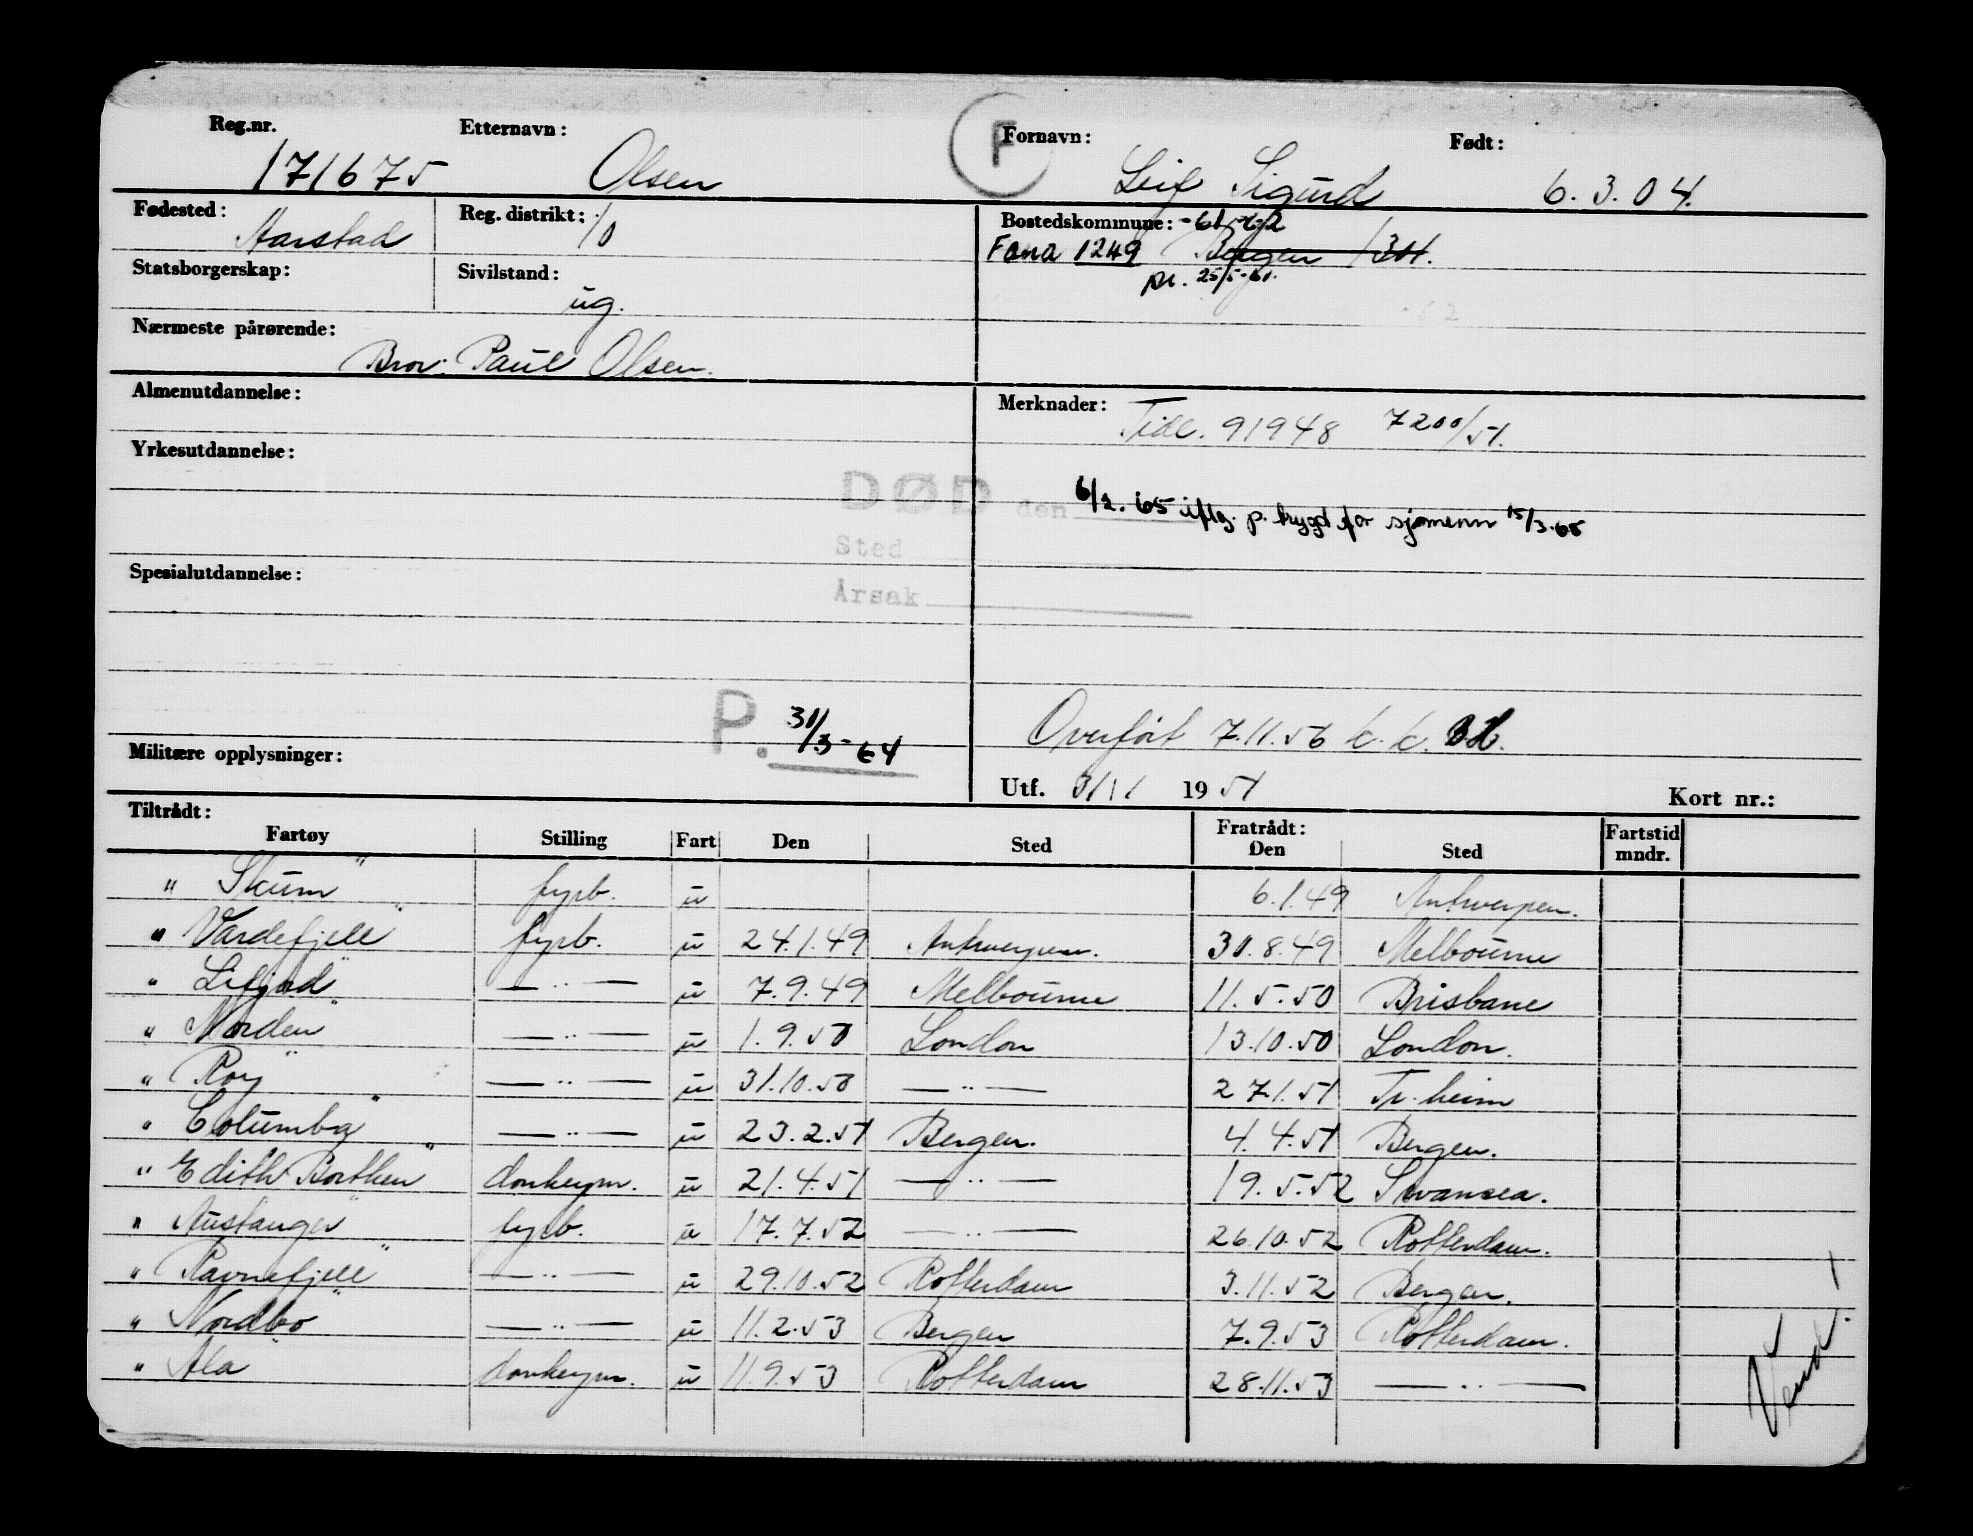 Reg.nr. Etternavn: F Fornavn: Født:
171675 Olsen Leif Sigurd 6.3.04.
Fødested: Reg. distrikt: Bostedskommune:
Aarstad 10 Fana 1249 Bergen 1301.
Statsborgerskap: Sivilstand: ug. pr. 25/5-61.
Nærmeste pårørende:
Bror: Paul Olsen.
Almenutdannelse: Merknader: Tidl. 91948 7200/51.
Yrkesutdannelse:
DØD den 6/2. 65 iflg. p. trygd for sjømenn 15/3.65
Sted
Årsak
Spesialutdannelse:
P. 31/3-64 Overført 7.11.56 k.k.
Militære opplysninger: Utf. 31/1 1951 Kort nr.:
Tiltrådt: Fratrådt:
Fartøy Stilling Fart Den Sted Den Sted Fartstid mndr.
" Skum " fyrb. u 6.1.49 Antwerpen.
" Vardefjell " fyrb. u 24.1.49 Antwerpen. 30.8.49 Melbourne
" Lifjord " —..— u 7.9.49 Melbourne 11.5.50 Brisbane
" Norden " —..— u 1.9.50 London 13.10.50 London.
" Roy " —..— u 31.10.50 —..— 27.1.51 Tr.heim
" Columba " —..— u 23.2.51 Bergen. 4.4.51 Bergen.
" Edith Borthen " donkeym. u 21.4.51 —..— 19.5.52 Swansea.
" Austanger " fyrb. u 17.7.52 —..— 26.10.52 Rotterdam.
" Ravnefjell " —..— u 29.10.52 Rotterdam 3.11.52 Bergen.
" Nordbo " —..— u 11.2.53 Bergen 7.9.53 Rotterdam.
" Ala " donkeym. u 11.9.53 Rotterdam 28.11.53 —..—
Vend!